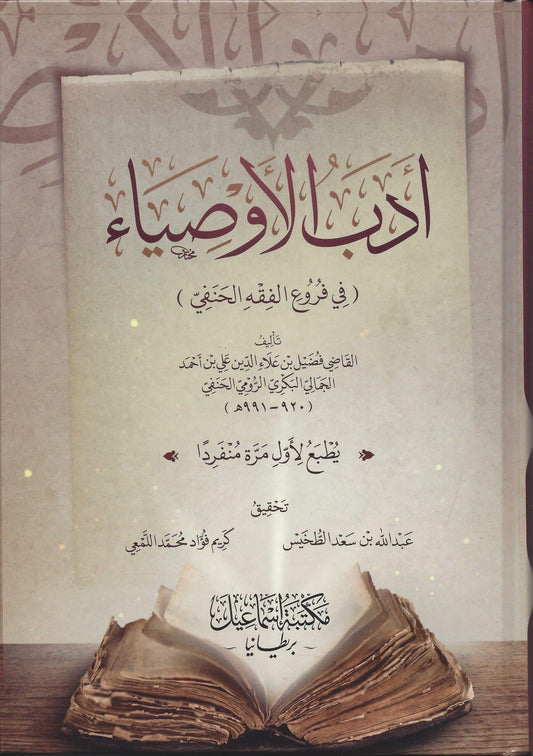 أَدَبُ الأَوْصِيَاء
(فِي فُرُوعِ الفِقْهِ الحَنَفِيِّ)
تَأْلِيفُ
القَاضِي فُضَيْل بْن عَلَاءِ الدِّين عَلِي بْن أَحْمَد
الجَمَالِيّ البَكْرِيّ الرُّومِيّ الحَنَفِيّ
(٩٢٠-٩٩١هـ)
يُطْبَعُ لِأَوَّلِ مَرَّةٍ مُنْفَرِدًا
تَحْقِيقُ
عَبْدالله بْن سَعْد الطُّخَيْس كَرِيم فُؤَاد مُحَمَّد اللَّمْعِي
مَكْتَبَةُ إِسْمَاعِيل
- بريطانيا -